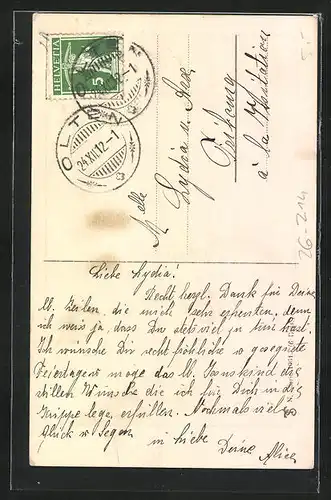 HELVETIA
5
OLTEN
24.XII.12-1
Mlle
Lydia
Freiburg
à la Visitation
26-214
5.-
Liebe Lydia!
Recht herzl. Dank für Deine
lb. Zeilen, die mich sehr erfreuten, denn
ich weiss ja, dass Du stets viel zu tun hast.
Ich wünsche Dir recht fröhliche u. gesegnete
Feiertage u. möge das lb. Jesuskind die
stillen Wünsche die ich für Dich in die
Krippe lege, erfüllen. Nochmals viel
Glück u. Segen
in Liebe
Deine Alice